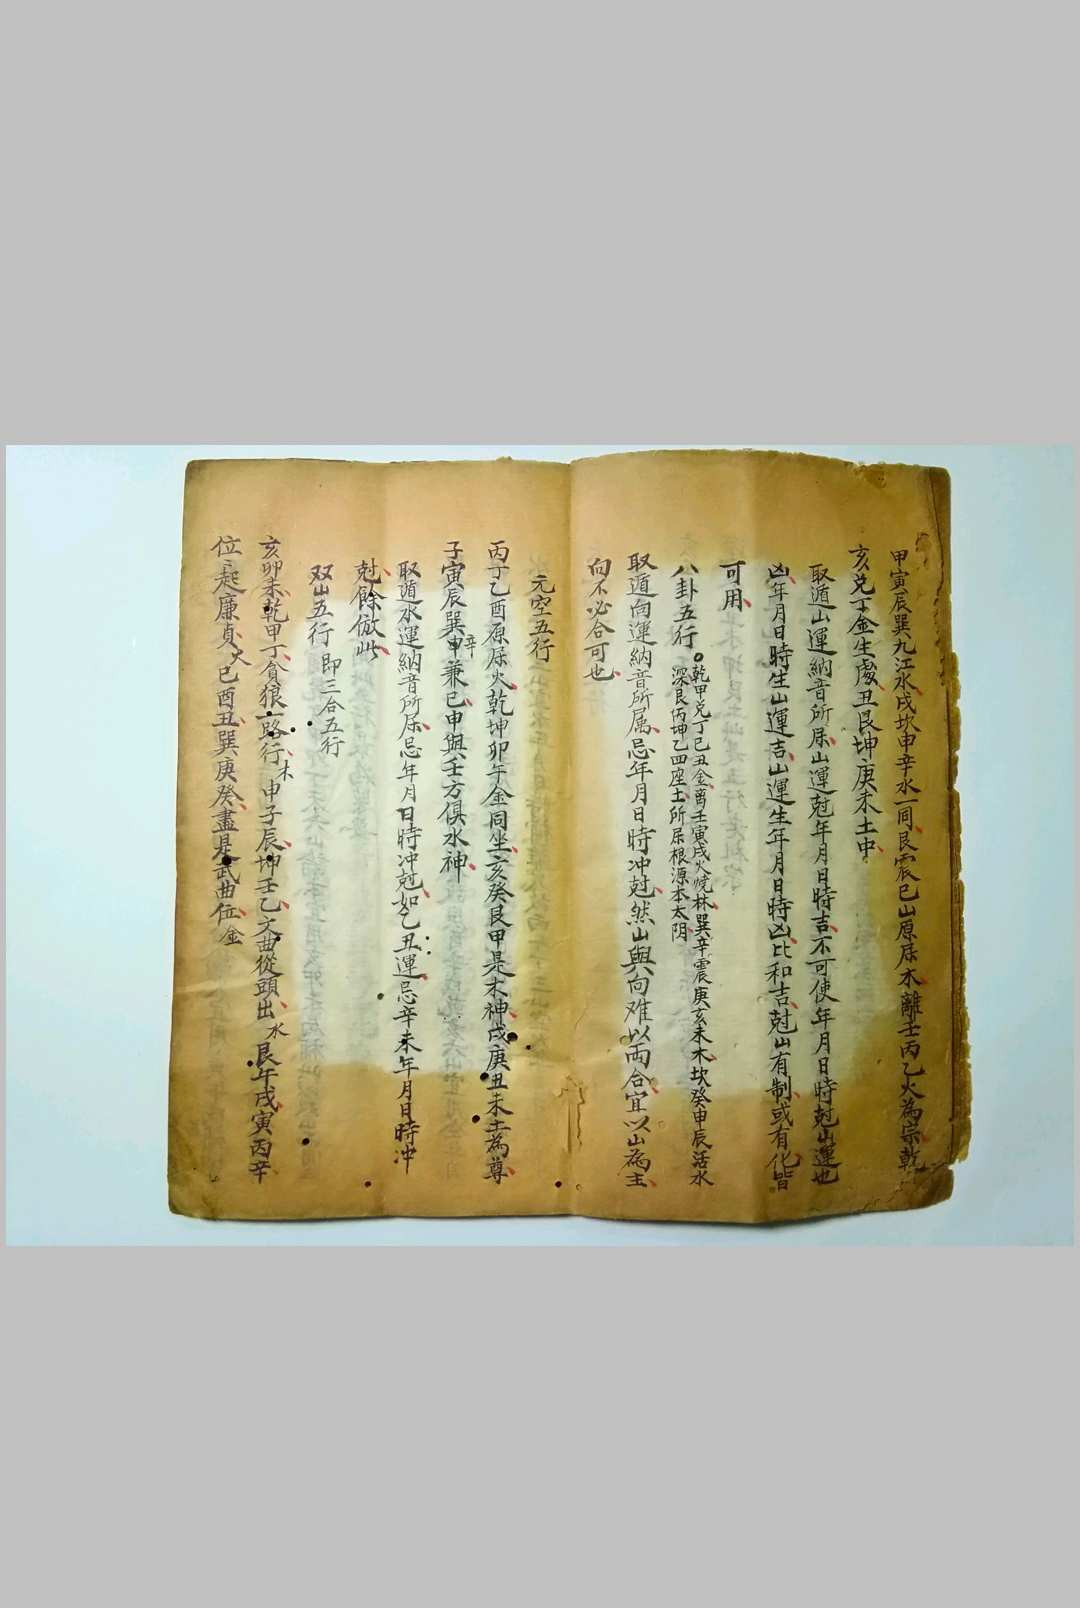 甲寅辰巽九江水戌坎申辛水一同艮震巳山原屬木離壬丙乙火為宗乾
亥兌丁金生處丑艮坤庚未土中
取遁山運納音所屬山運尅年月日時吉不可使年月日時尅山運也
凶年月日時生山運吉山運生年月日時凶比和吉尅山有制或有化皆
可用
八卦五行。乾甲兌丁巳丑金离壬寅戌火燒林巽辛震庚亥未木坎癸申辰活水
深艮丙坤乙四座土所屬根源本太陰
取遁向運納音所属忌年月日時冲尅然山與向难以両合宜以山為主
向不必合可也
元空五行
丙丁乙酉原屬火乾坤卯午金同坐亥癸艮甲是木神戌庚丑未土為尊
子寅辰巽辛兼巳申與壬方俱水神
取遁水運納音所屬忌年月日時冲尅如乙丑運忌辛未年月日時冲
尅餘倣此
双山五行 即三合五行
亥卯未乾甲丁貪狼一路行木申子辰坤壬乙文曲從頭出水艮午戌寅丙辛
位位起廉貞火巳酉丑巽庚癸盡是武曲位金